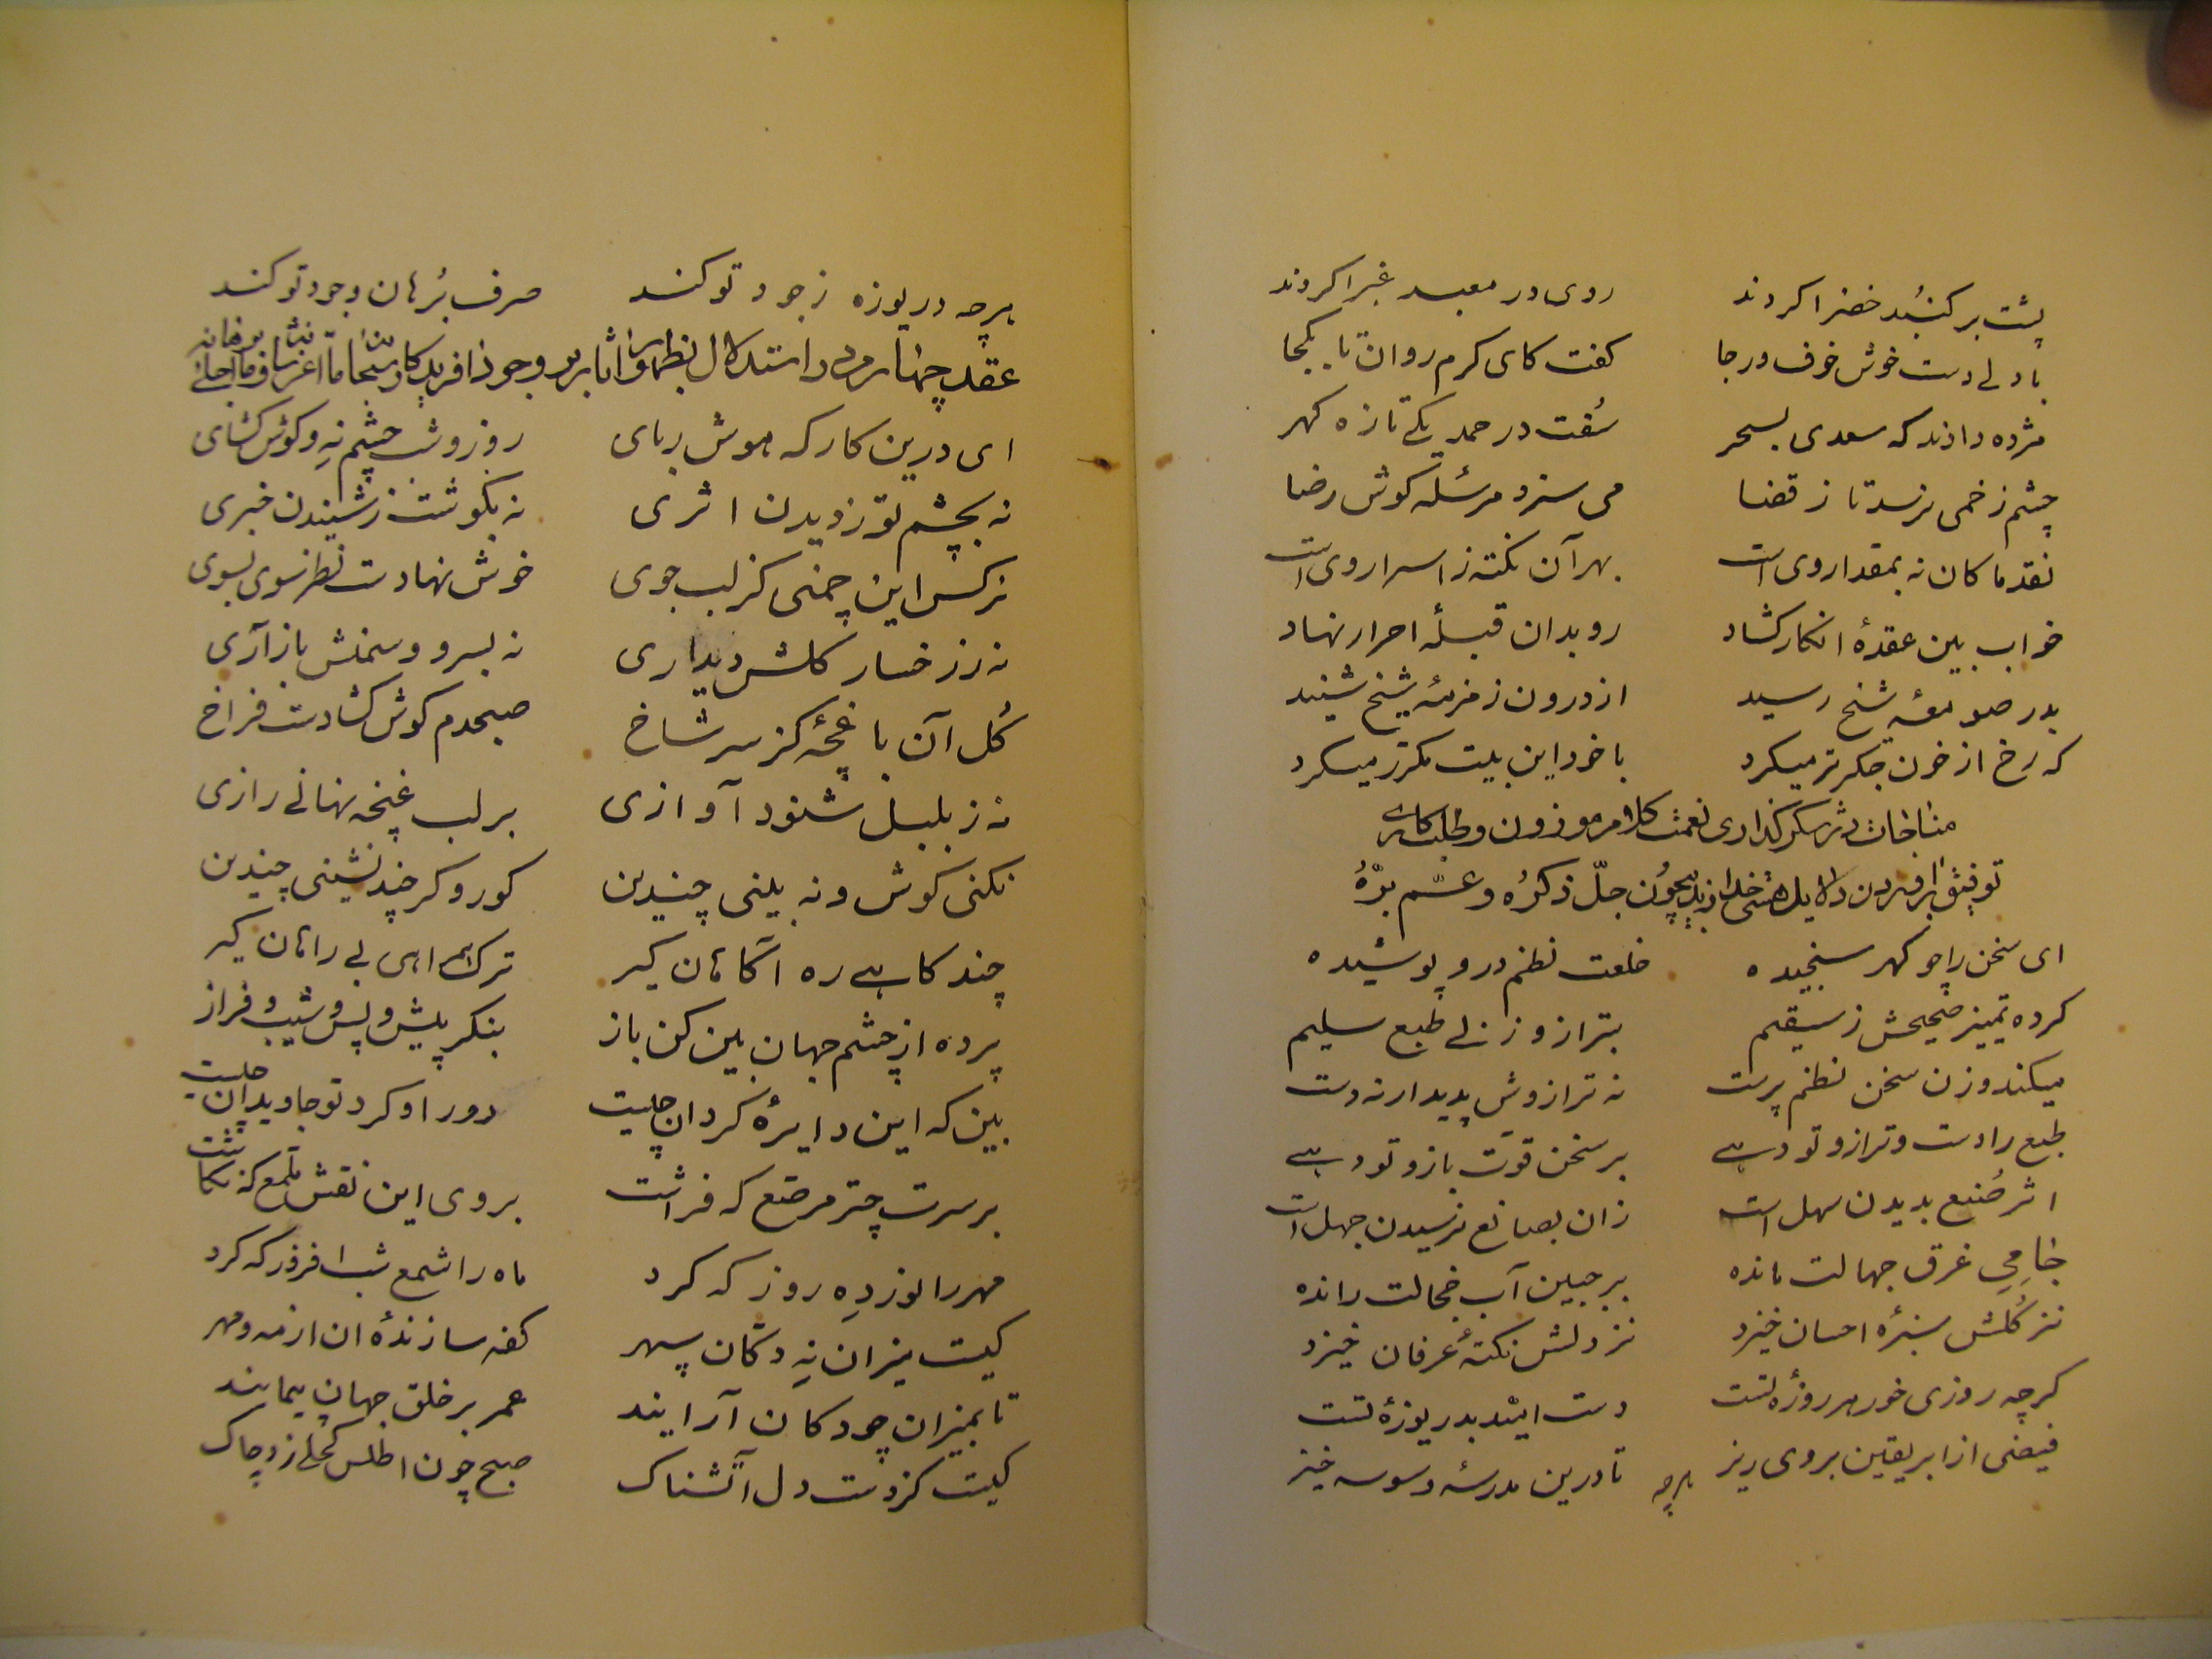 پشت بر کنبُد خضرا کردند روی در معبد غبرا کردند
با دلی دست خوش خوف و رجا کفت کای کرم روان تا بکجا
مژده دادند که سعدی بسحر سُفت در حمد یکی تازه کهر
چشم زخمی نرسد تا ز قضا می سزد مرسله کوش رضا
نقد ما کان نه بمقدار وی است بهر آن نکته ز اسرار وی است
خواب بین عقدهٔ انکار کشاد رو بدان قبلهٔ احرار نهاد
بدر صومعهٔ شیخ رسید از درون زمزمهٔ شیخ شنید
که رخ از خون جکر تر میکرد با خود این بیت مکرر میکرد
مناجات در شکر کذاری نعمت کلام موزون و طلبکاری
توفیق برافزودن دلایل هستی خداوند بیچون جلّ ذکرُه و عمّ برّهُ
ای سخن را چو کهر سنجیده خلعت نظم درو پوشیده
کرده تمییز صحیحش ز سقیم بترازو زنی طبع سلیم
میکند وزن سخن نظم پرست نه ترازوش پدیدار نه دست
طبع را دست و ترازو تو دهی بر سخن قوّت بازو تو دهی
اثر صُنع بدیدن سهل است زان بصانع نرسیدن جهل است
جامیِ غرق جهالت مانده بر جبین آب خجالت رانده
نز کُلش سبزهٔ احسان خیزد نز دلش نکتهٔ عرفان خیزد
کرچه روزی خور هر روزهٔ تست دست امید بدریوزهٔ تست
فیضی از ابر یقین بروی ریز تا درین مدرسهٔ وسوسه خیز
هرچه
هرچه دریوزه ز جود تو کند صرف بُرهان وجود تو کند
عقد چهارم در استدلال بظهور آثار بر وجود آفریدکار سبحانه ما اعز شانه و ما اجلی برهانه
ای درین کارکه هوش ربای روز و شب چشم نِه و کوش کشای
نه بچشم تو ز دیدن اثری نه بکوشت ز شنیدن خبری
نرکس این چمنی کز لب جوی خوش نهادست نظر سوی بسوی
نه ز رخسار کلش دیداری نه بسرو و سمنش بازاری
کُل آن باغچهٔ کز سر شاخ صبحدم کوش کشادست فراخ
نه ز بلبل شنود آوازی بر لب غنچه نهانی رازی
نکنی کوش و نه بینی چندین کور و کر چند نشینی چندین
چند کاهی ره آکاهان کیر ترک همراهی بی راهان کیر
پرده از چشم جهان بین کن باز بنکر پیش و پس و شیب و فراز
بین که این دایرهٔ کردان چیست دور او کرد تو جاویدان چیست
بر سرت چتر مرصّع که فراشت بروی این نقش ملمّع که نکاشت
مهر را نور دِهِ روز که کرد ماه را شمع شب افروز که کرد
کیست میزان نِهِ دکّان سپهر کفه سازندهٔ ان از مه و مهر
تا بمیزان چو دکان آرایند عمر بر خلق جهان پیمایند
کیست کز دست دل آتشناک صبح چون اطلس کحلی زد چاک